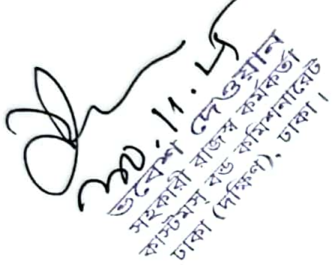 ৩০.১১.২৫
তবেশ দেওয়ান
সহকারী রাজস্ব কর্মকর্তা
কাস্টমস্ বন্ড কমিশনারেট
ঢাকা (দক্ষিণ), ঢাকা।